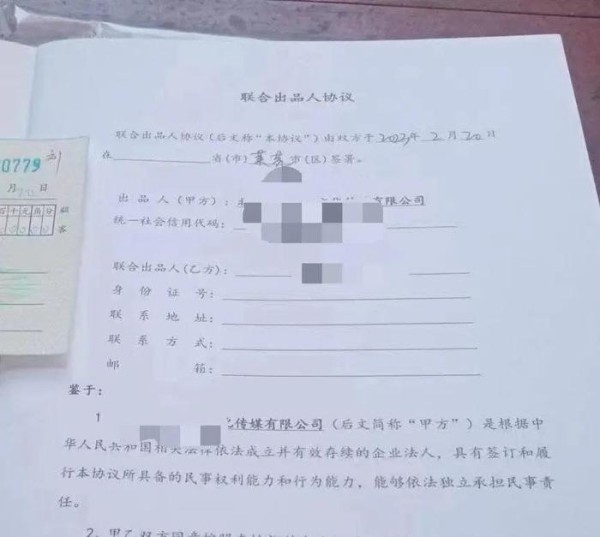 联合出品人协议
联合出品人协议(后文称“本协议”)由双方于2023年2月20日
在 省(市) 市(区)签署。
0779
月 日
百十元角分
顾
客
出品人(甲方): 有限公司
统一社会信用代码:
联合出品人(乙方):
身份证号:
联系地址:
联系方式:
邮箱:
鉴于:
1 传媒有限公司(后文简称“甲方”)是根据中
华人民共和国相关法律依法成立并有效存续的企业法人,具有签订和履
行本协议所具备的民事权利能力和行为能力,能够依法独立承担民事责
任。
2、甲乙双方同意按照